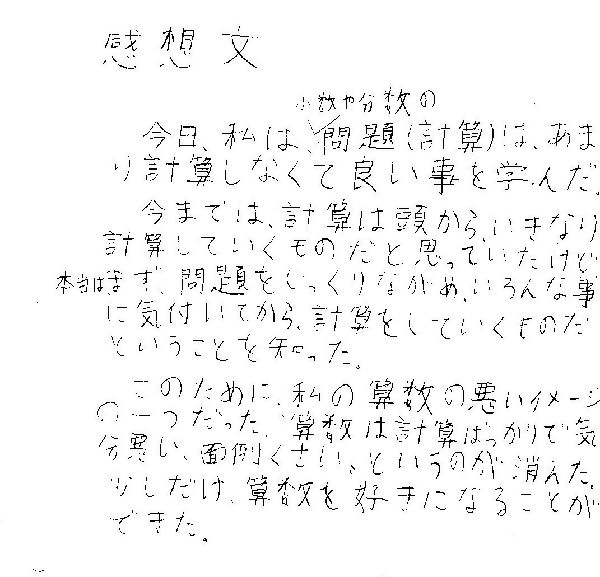 感想文
小数や分数の
今日、私は、問題(計算)は、あま
り計算しなくて良い事を学んだ。
今までは、計算は頭から、いきなり
計算していくものだと思っていたけど
本当はまず、問題をじっくりながめ、いろんな事
に気付いてから、計算をしていくものだ
ということを知った。
このために、私の算数の悪いイメージ
の一つだった、算数は計算ばっかりで気
分悪い、面倒くさい、というのが消えた。
少しだけ、算数を好きになることが
できた。